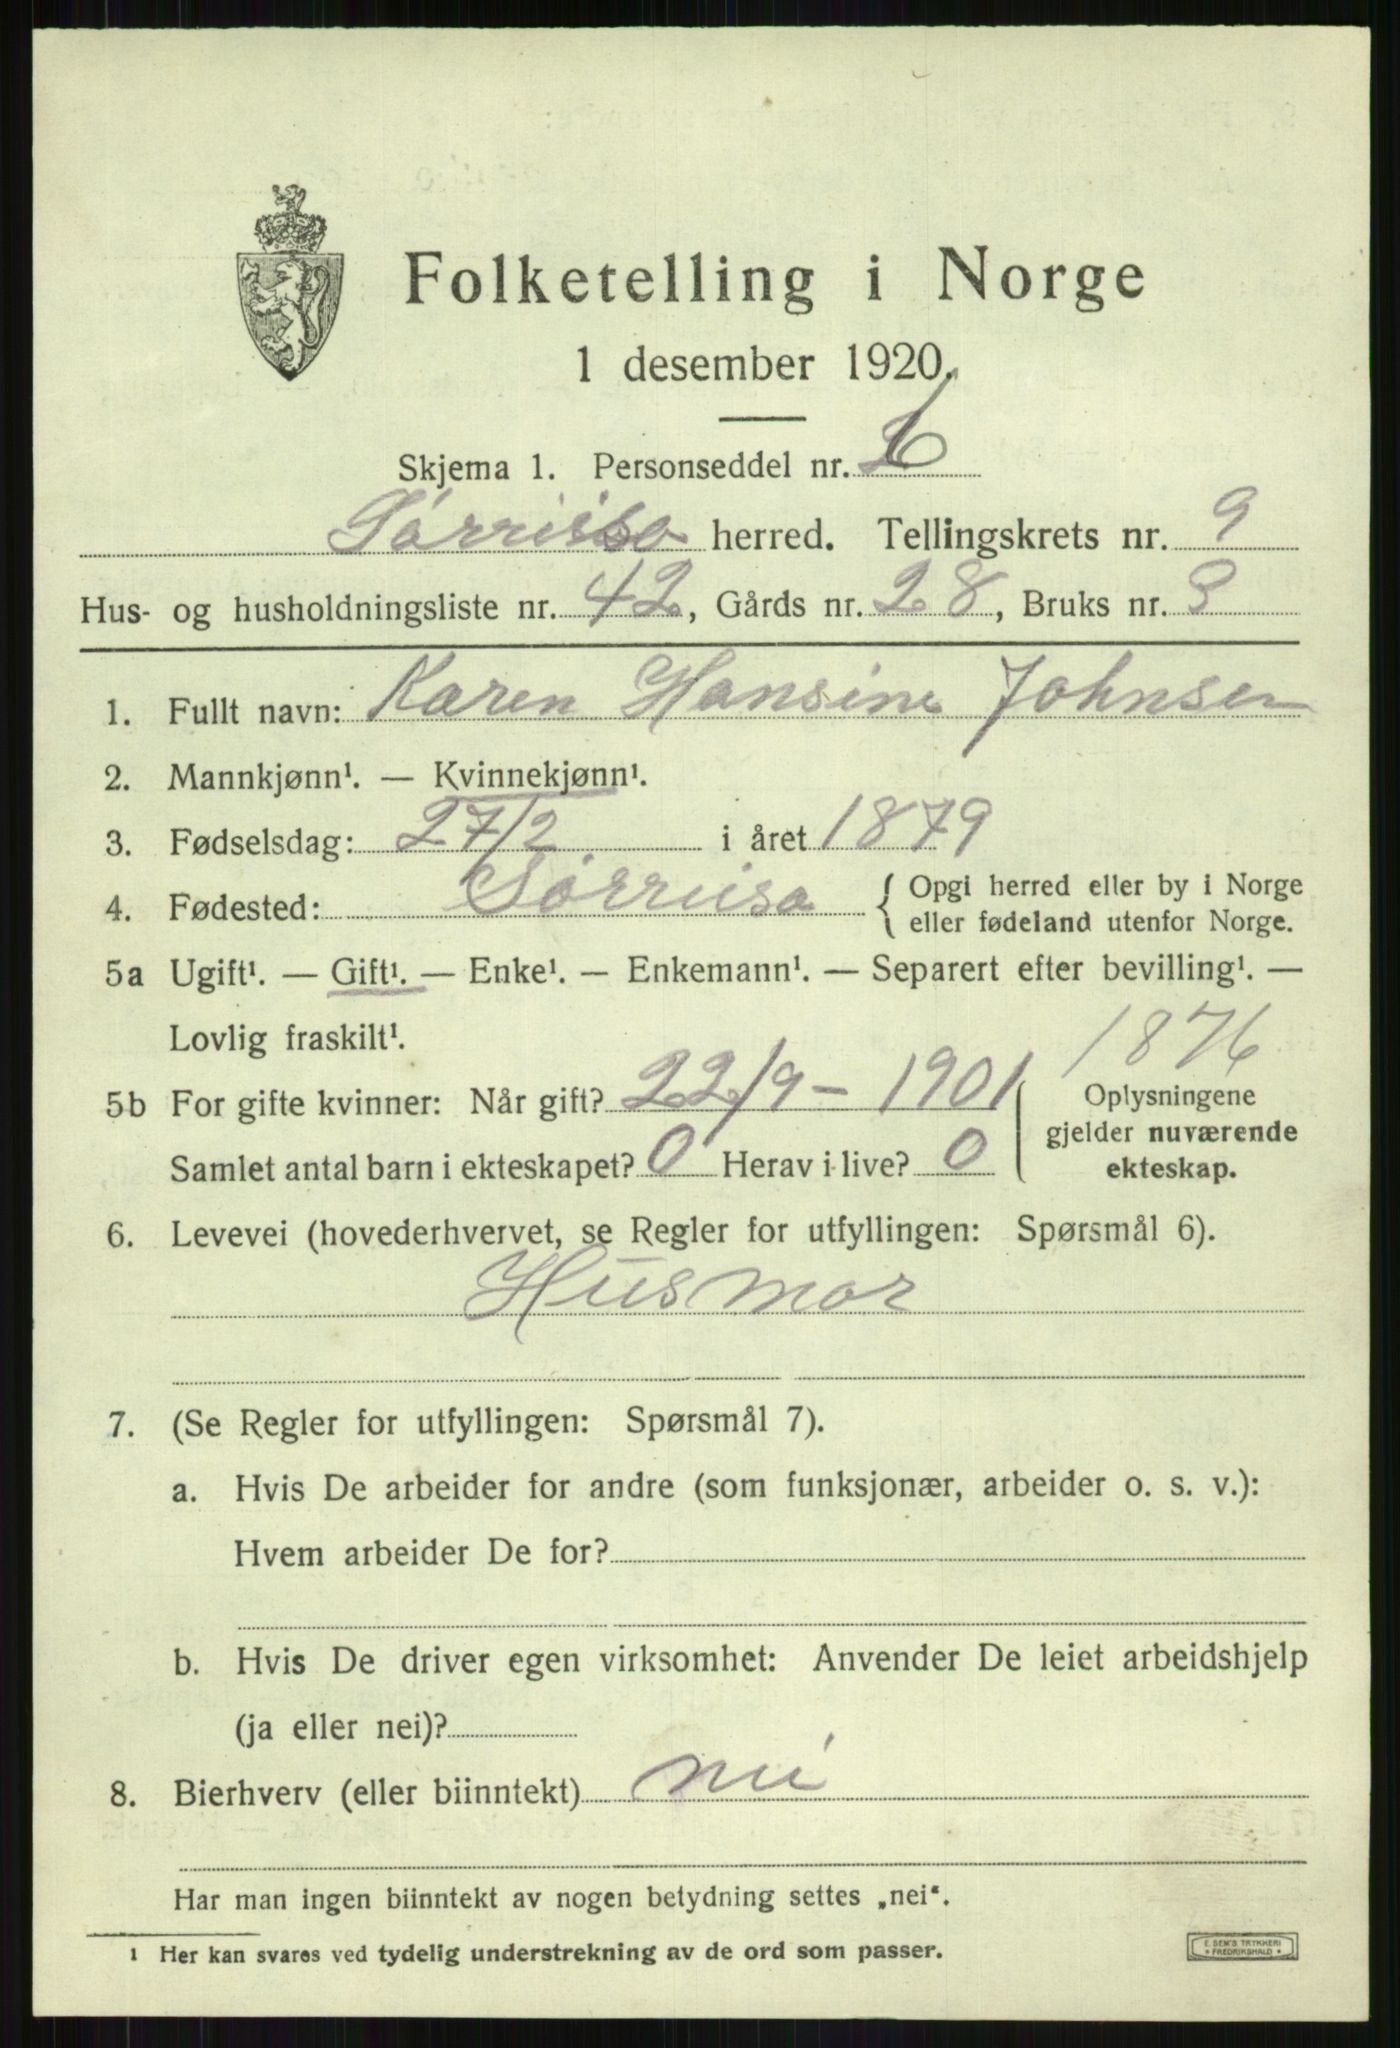 Folketelling i Norge
1 desember 1920.
Skjema 1. Personseddel nr. 6
Sørreisa herred. Tellingskrets nr. 9
Hus- og husholdningsliste nr. 42, Gårds nr. 28, Bruks nr. 8
1. Fullt navn: Karen Hansine Johnsen
2. Mannkjønn¹. — Kvinnekjønn¹.
3. Fødselsdag: 27/2 i året 1879
4. Fødested: Sørreisa { Opgi herred eller by i Norge
eller fødeland utenfor Norge.
5a Ugift¹. — Gift¹. — Enke¹. — Enkemann¹. — Separert efter bevilling¹. —
Lovlig fraskilt¹.
1876
5b For gifte kvinner: Når gift? 22/9 – 1901
Samlet antal barn i ekteskapet? 0 Herav i live? 0
Oplysningene
gjelder nuværende
ekteskap.
6. Levevei (hovederhvervet, se Regler for utfyllingen: Spørsmål 6).
Husmor
7. (Se Regler for utfyllingen: Spørsmål 7).
a. Hvis De arbeider for andre (som funksjonær, arbeider o. s. v.):
Hvem arbeider De for?
b. Hvis De driver egen virksomhet: Anvender De leiet arbeidshjelp
(ja eller nei)?
8. Bierhverv (eller biinntekt) nei
Har man ingen biinntekt av nogen betydning settes „nei“.
¹ Her kan svares ved tydelig understrekning av de ord som passer.
E. SEM'S TRYKKERI
• FREDRIKSHALD •